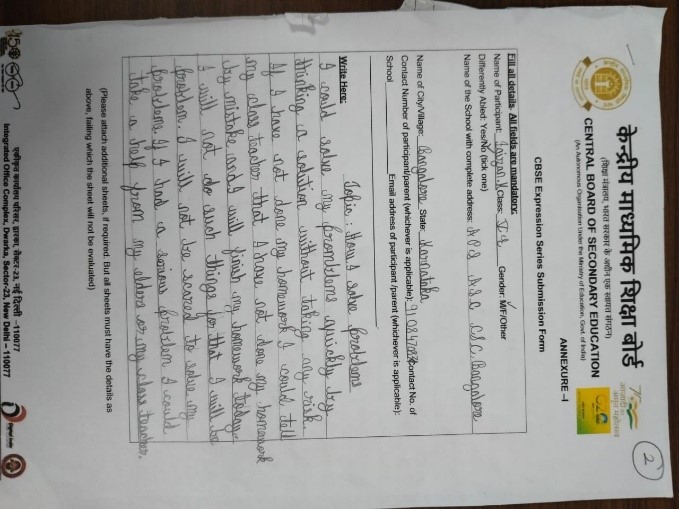 2
केन्द्रीय माध्यमिक शिक्षा बोर्ड
(शिक्षा मंत्रालय, भारत सरकार के अधीन एक स्वायत्त संगठन)
CENTRAL BOARD OF SECONDARY EDUCATION
(An Autonomous Organisation Under the Ministry of Education, Govt. of India)
ANNEXURE –I
CBSE Expression Series Submission Form
Fill all details. All fields are mandatory:
Name of Participant: Class: Gender: M/F/Other
Differently Abled: Yes/No (tick one)
Name of the School with complete address: A.P.S A.S.C C.S.C. Bangalore
Name of City/Village: Bangalore State: Karnataka
Contact Number of participant/parent (whichever is applicable): Contact No. of
School Email address of participant /parent (whichever is applicable):
Write Here:
Topic: How I solve problems
I could solve my promblems quickly by
thinking a solution without taking any risk.
If I have not done my homework I could tell
my class teacher that I have not done my homework
by mistake and I will finish my homework today.
I will not do such things for that I will be
problem. I will not be scared to solve my
problem. If I had a serious problem I could
take a help from my elders or my class teacher.
(Please attach additional sheets, if required. But all sheets must have the details as
above, failing which the sheet will not be evaluated)
एकीकृत कार्यालय परिसर, द्वारका, सेक्टर-23, नई दिल्ली –110077
Integrated Office Complex, Dwarka, Sector-23, New Delhi – 110077